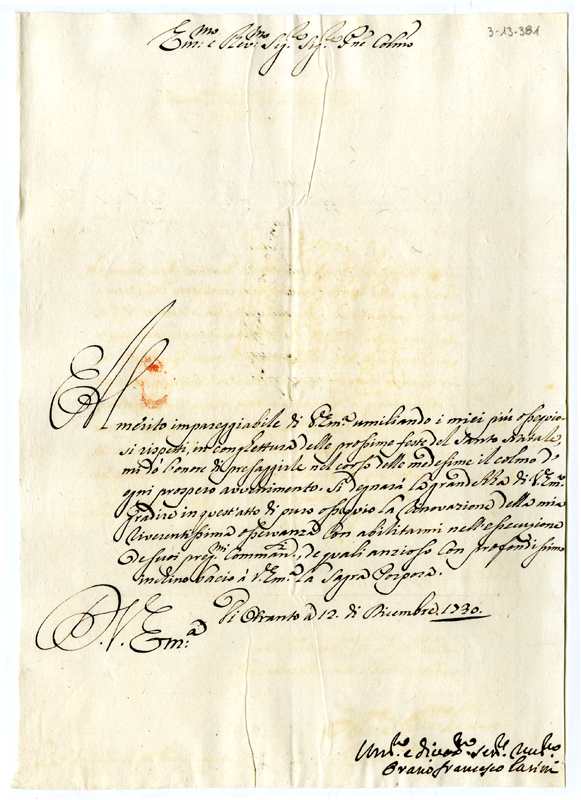 3-13-381
Em.mo e Rev.mo Sig.r Sig.r Pñe Colmo
Al
merito impareggiabile di V. Em.a umiliando i miei più ossequio-
si rispetti, in congiettura delle prossime feste del Santo Natale,
mi dò l'onore di presaggirle nel corso delle medesime il colmo d'
ogni prospero avvenimento. Si degnarà la grandezza di V. Em.a
gradire in quest'atto di puro ossequio la rinovazione della mia
riverentissima osservanza con abilitarmi nell'essecuzione
de suoi preg.mi Commandi, de quali anzioso con profondissimo
inchino bacio à V. Em.a la Sagra Porpora.
Di Otranto a 12. di Dicembre 1730.
D. V. Em.a
Um.o e divot.mo ser.
Orazio Francesco